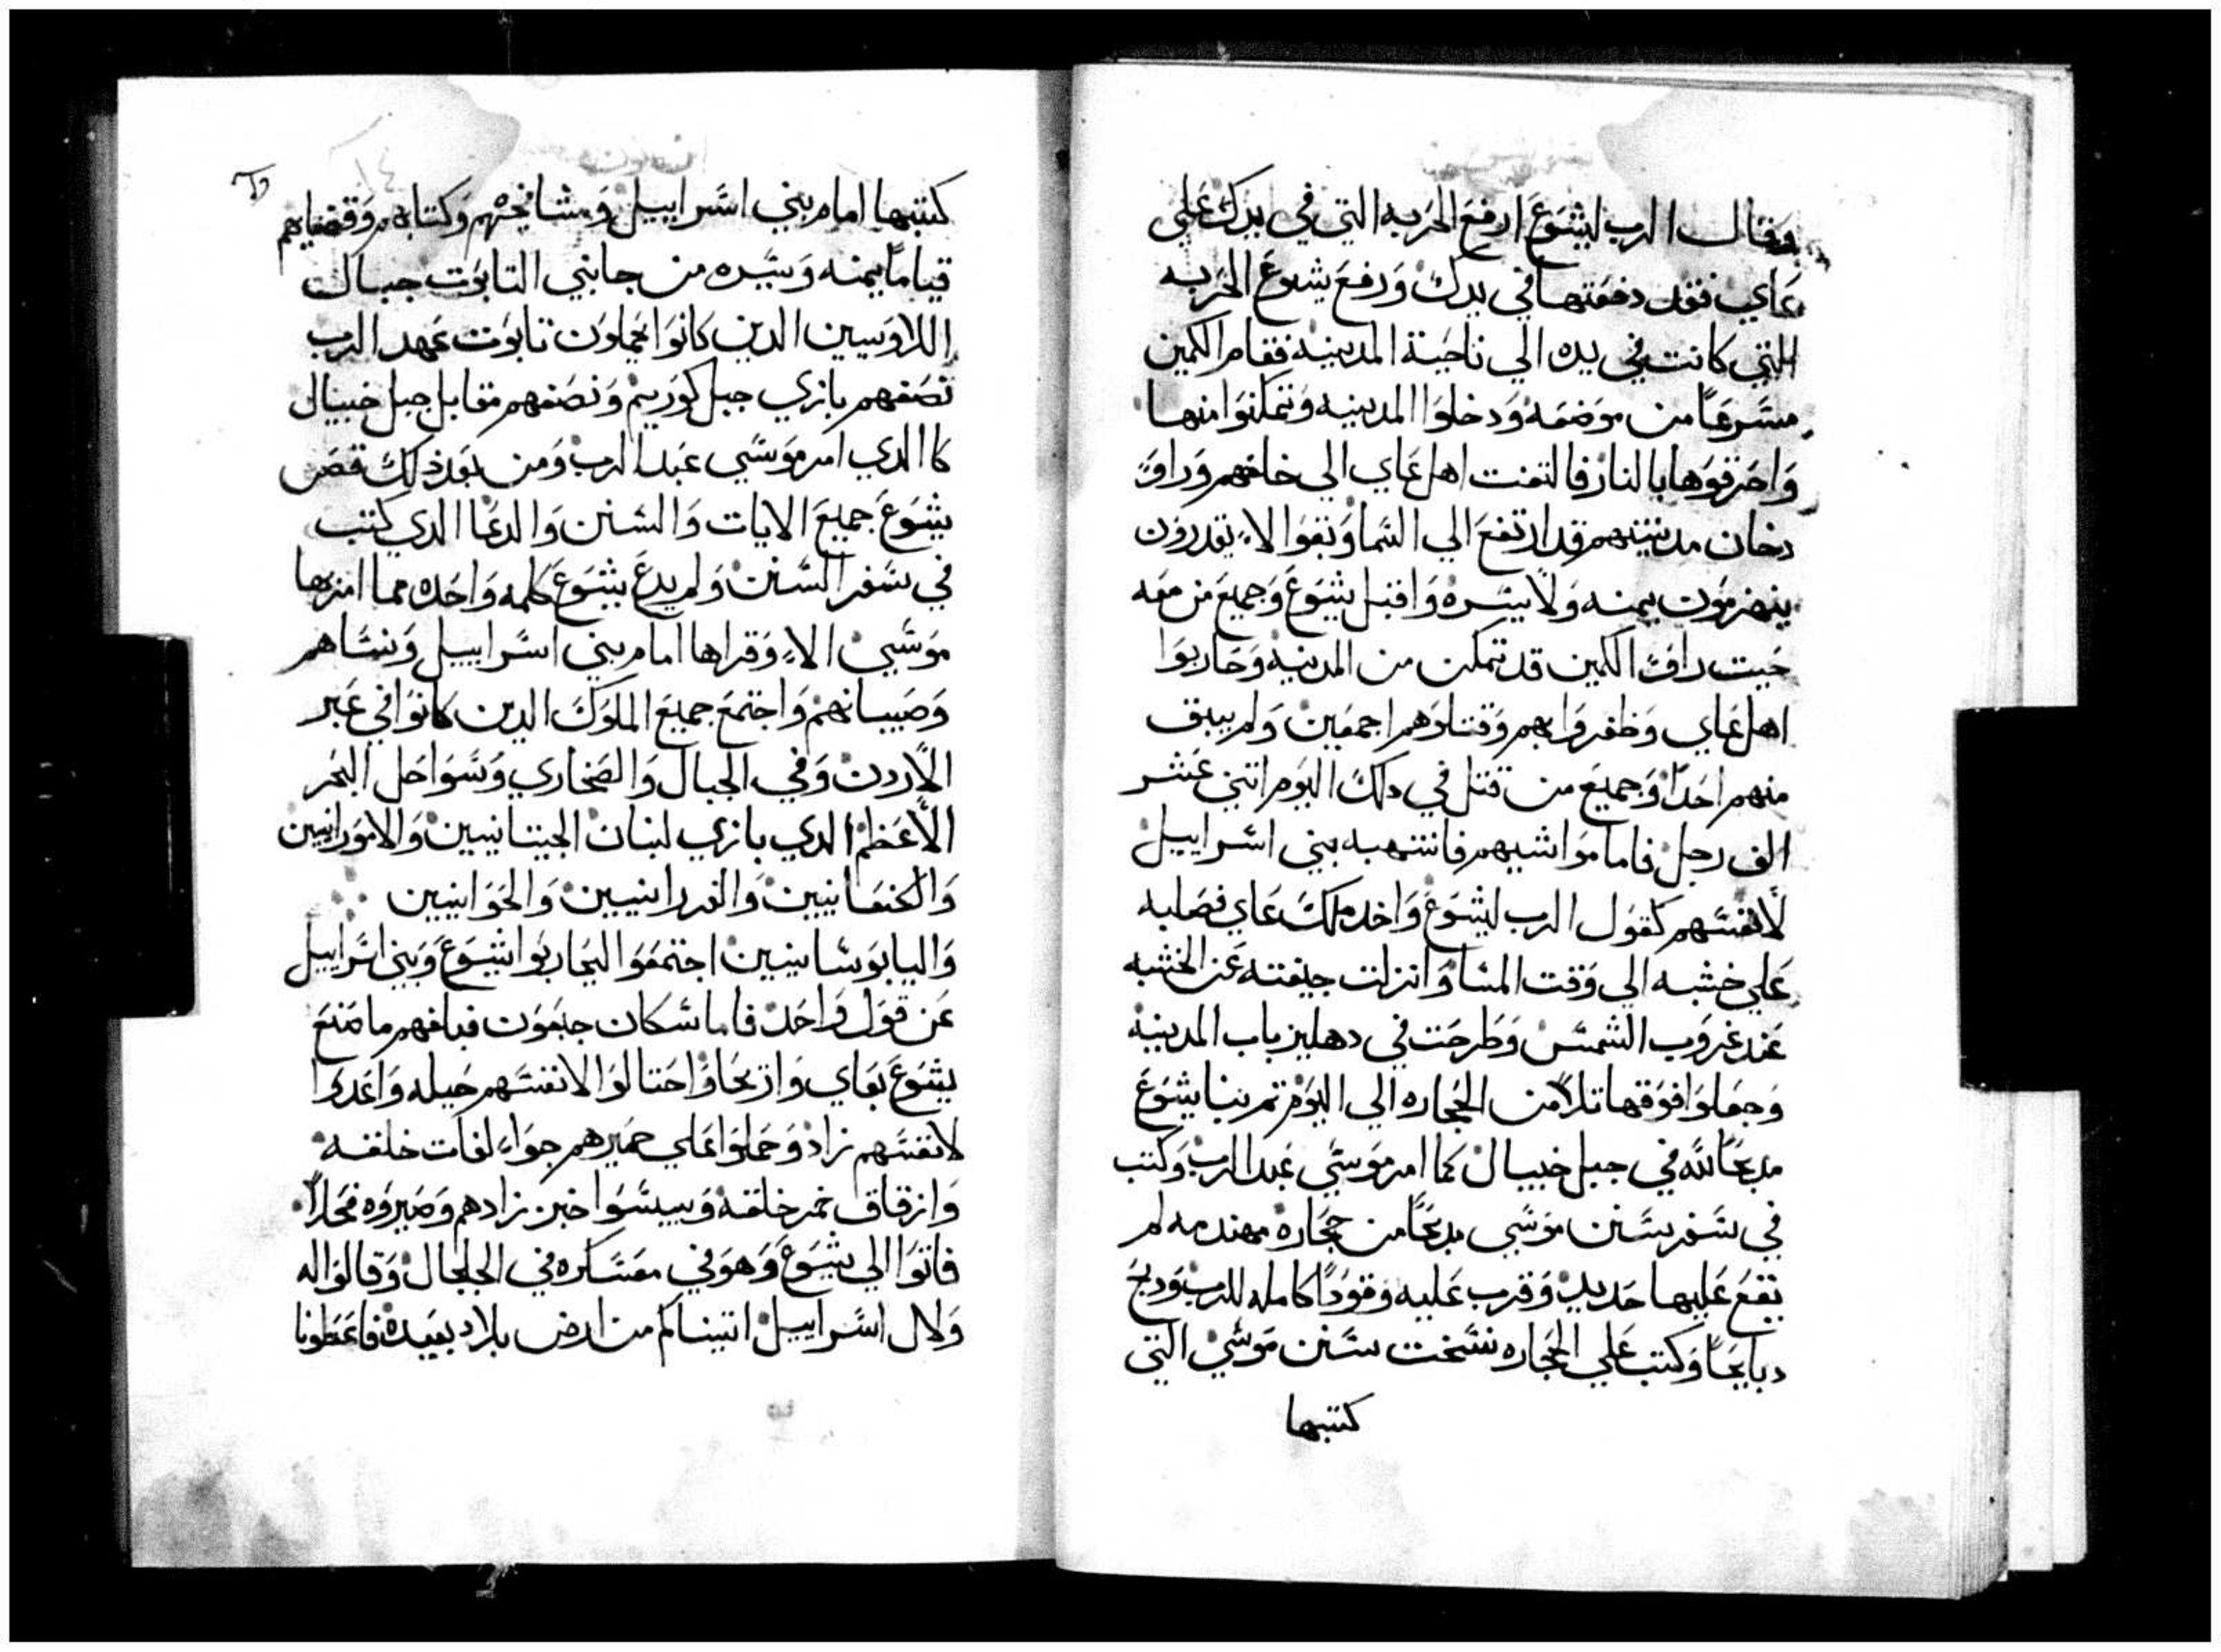 وقال الرب ليشوع ارفع الحربه التي في يدك علي
عاي فقد دفعتها في يدك ورفع يشوع الحربه
التي كانت في يده الي ناحية المدينه فقام الكمين
مسرعًا من موضعه ودخلوا المدينه وتمكنوا منها
واحرقوها بالنار فالتفت اهل عاي الي خلفهم وراوا
دخان مدينتهم قد ارتفع الي السما وبقوا لا يقدرون
ينهزمون يمنه ولا يسره واقبل يشوع وجميع من معه
حيت راوا الكمين قد تمكن من المدينه وحاربوا
اهل عاي وظفروا بهم وقتلوهم اجمعين ولم يبق
منهم احدًا وجميع من قتل في دلك اليوم اتني عشر
الف رجل فاما مواشيهم فانتهبه بني اسراييل
لانفسهم كقول الرب ليشوع واخد ملك عاي فصلبه
علي خشبه الي وقت المسا وانزلت جيفته عن الخشبه
عند غروب الشمس وطرحت في دهليز باب المدينه
وجعلوا فوقها تلا من الحجاره الي اليوم تم بنا يشوع
مدبحًا لله في جبل خيبال كما امر موسي عبد الرب وكتب
في سفر سنن موسي مدبحًا من حجاره مهندمه لم
يقع عليها حديد وقرب عليه وقودًا كامله للرب ودبح
دبايحًا وكتب علي الحجاره نسخت سنن موسي التي
كتبها
كتبها امام بني اسراييل ومشايخهم وكتابهم وقضايهم
قيامًا يمنه ويسره من جانبي التابوت جبال
اللاويين الدين كانوا يحملون تابوت عهد الرب
نصفهم بازي جبل كوريم ونصفهم مقابل جبل خيبال
كا الدي امر موسي عبد الرب ومن بعد ذلك قص
يشوع جميع الايات والسنن والدعا الدي كتب
في سفر السنن ولم يدع يشوع كلمه واحده مما امر بها
موسي الا وقراها امام بني اسراييل ونساهم
وصبيانهم واجتمع جميع الملوك الدين كانوا في عبر
الاردن وفي الجبال والصخاري وسواحل البحر
الأعظم الدي بازي لبنان الجيتانيين والامورانيين
والكنعانيين والفررانيين والحوانيين
واليابوسانيين اجتمعوا ليحاربوا يشوع وبني اسراييل
عن قول واحد فاما سكان جبعون فبلغهم ما صنع
يشوع بعاي واريحا واحتالوا لانفسهم حيله واعدوا
لانفسهم زاد وحملوا علي حميرهم جوالفات خلقه
وازقاق خمر خلقه ويبسوا خبز زادهم وصيروه فحلاً
فاتوا الي يشوع وهو في معسكره في الجلجال وقالوا له
ولال اسراييل اتيناكم من ارض بلاد بعيده فاعطونا